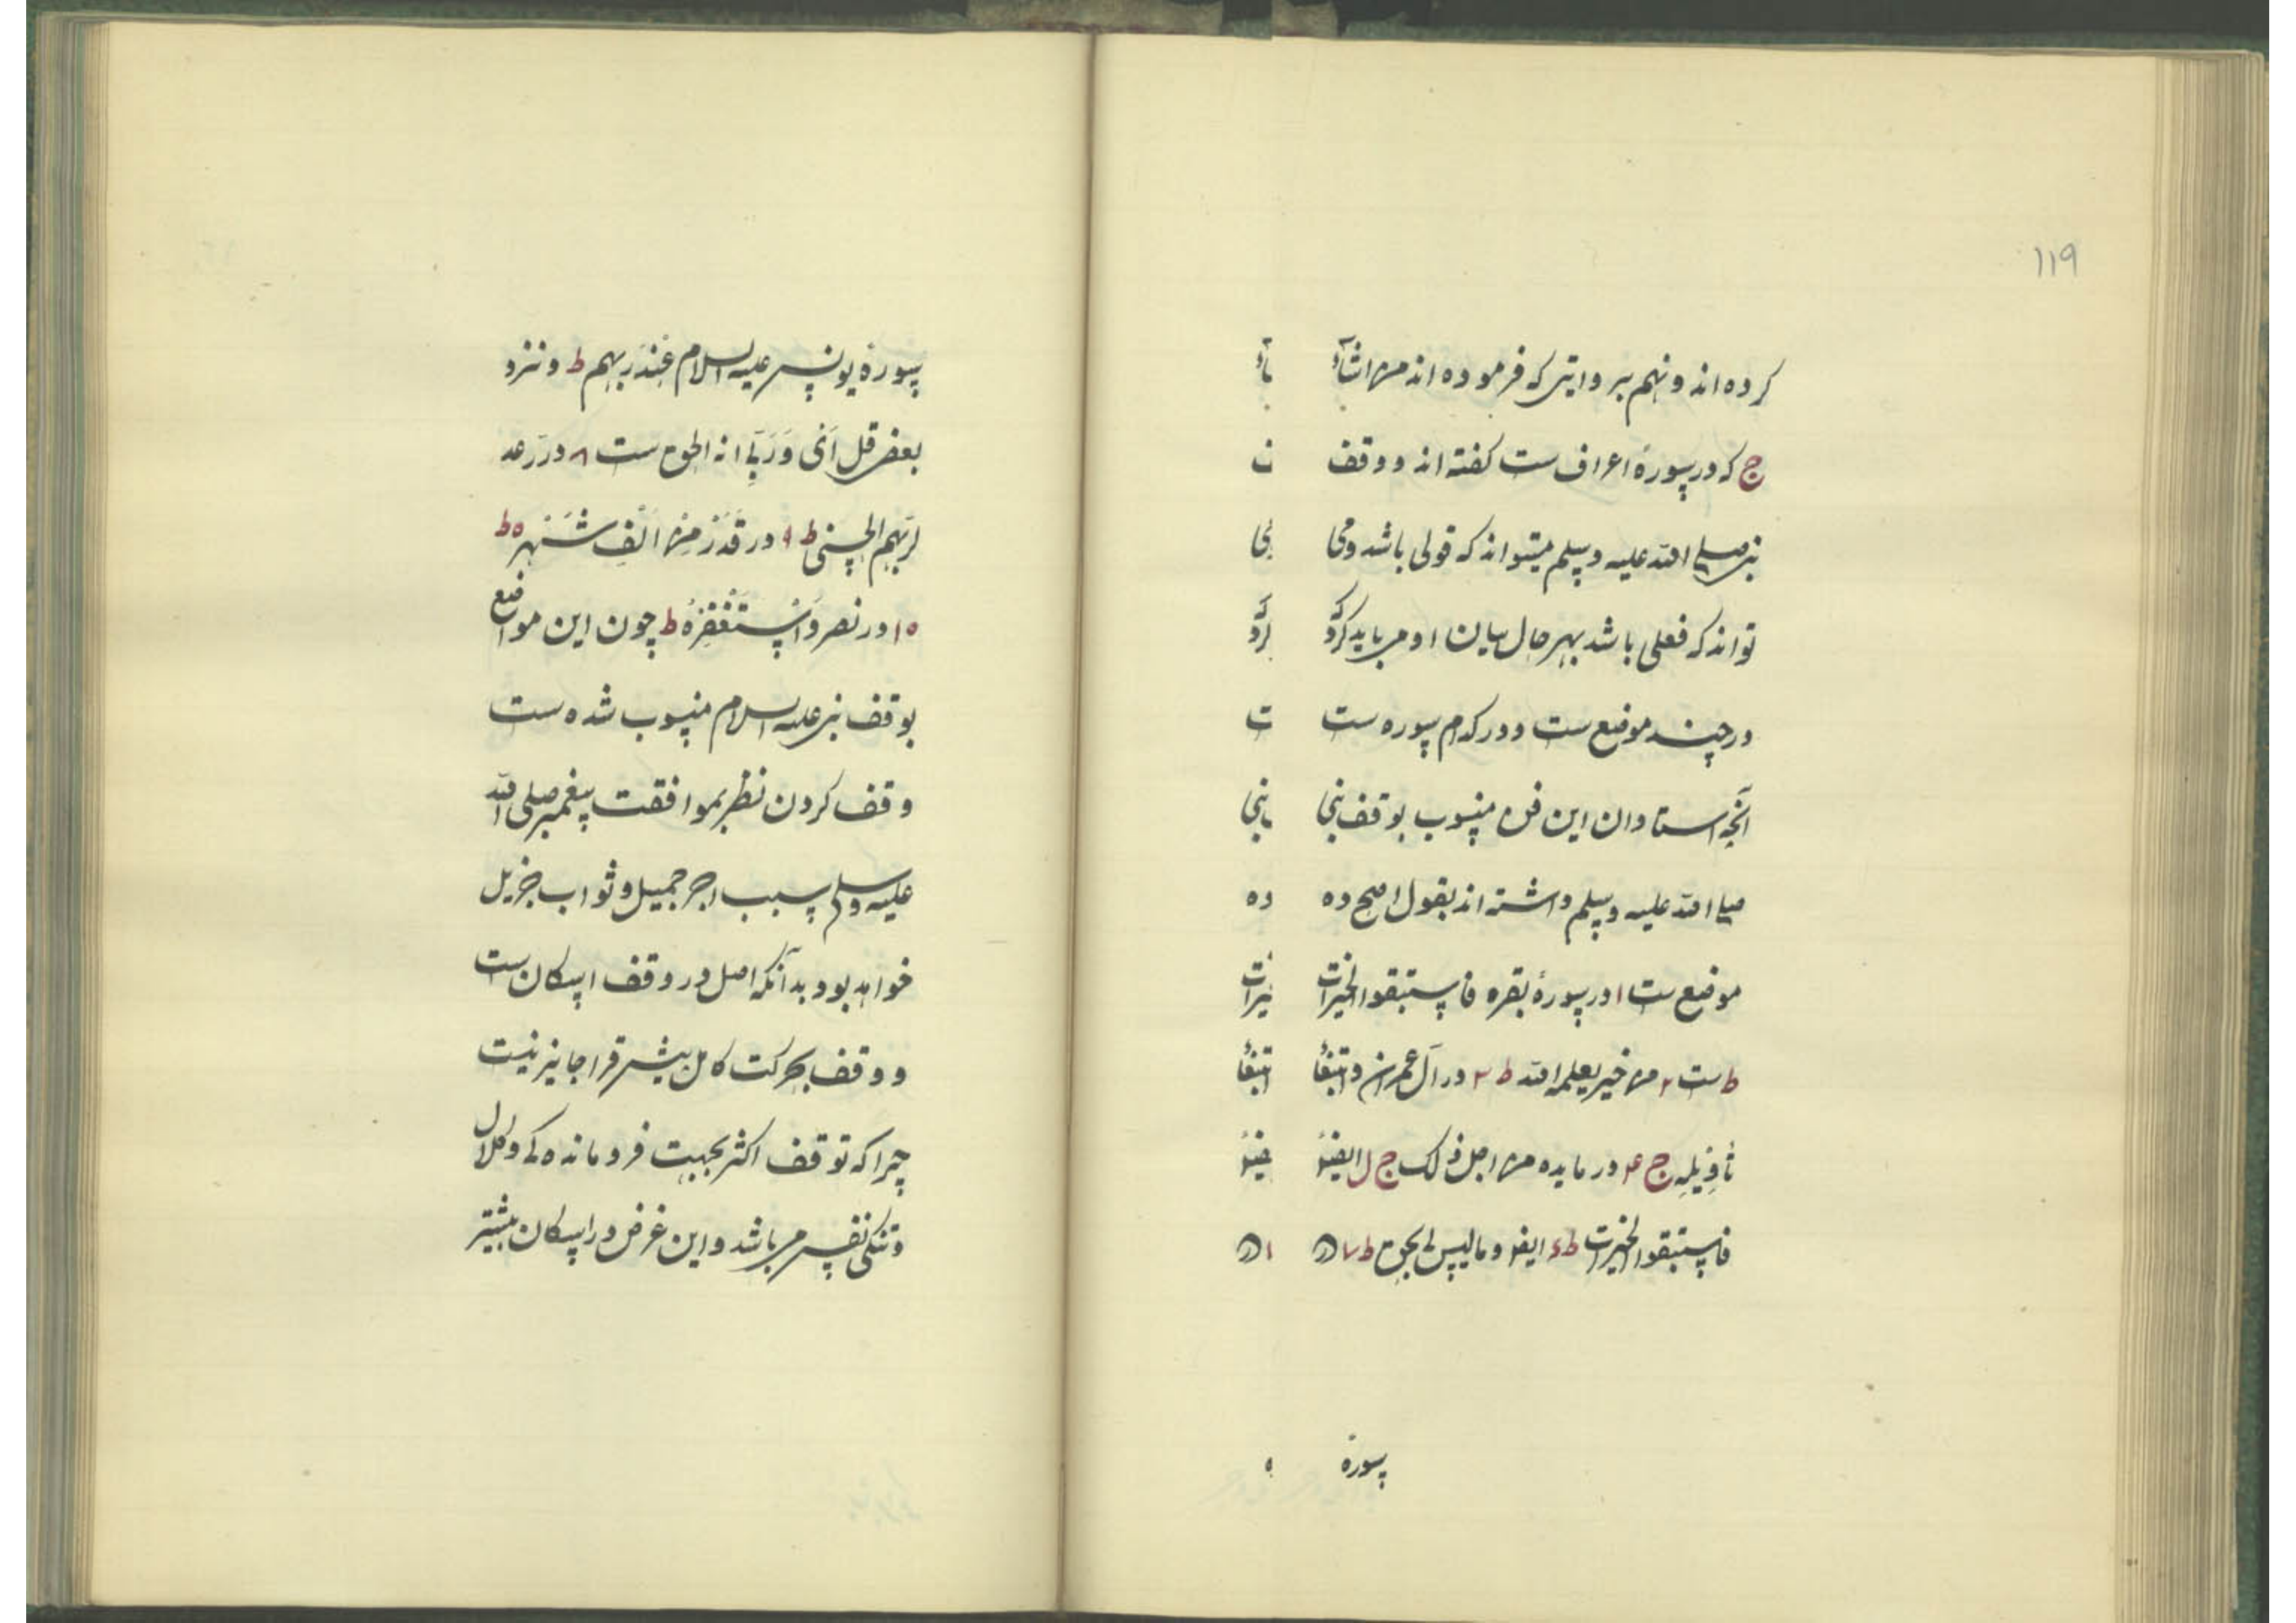 ۱۱۹
کرده اند و نهم بروایتی که فرموده اند من اشآء
ج که در سورهٔ اعراف ست کفته اند و وقف
نبی صلی الله علیه وسلم میتواند که قولی باشد و می
تواند که فعلی باشد بهر حال بیان او می باید کرد که
در چند موضع ست و در کدام سوره ست
آنچه استادان این فن منسوب بوقف نبی
صلی الله علیه وسلم داشته اند بقول اصح ده
موضع ست ۱ در سورهٔ بقره فاستبقوا الخیرات
ط ست ۲ من خیر یعلمه الله ط ۳ در آل عمران وابتغآ
تأویله ج ۴ در مایده من اجل ذلک ج ل ایضًو
فاستبقوا الخیرات ط ۶ ایضو و ما لیس لی بحق ط ۷ در
سورة
سورة یونس علیه السلام عند ربهم ط و نزد
بعضی قل ای وربی انه الحق ست ۸ در رعد
لربهم الحسنی ط ۹ در قدر من الف شهر ه ط
۱۰ در نصر واستغفره ط چون این مواضع
بوقف نبی علیه السلام منسوب شده ست
وقف کردن نظر بموافقت پیغمبر صلی الله
علیه وسلم سبب اجر جمیل و ثواب جزیل
خواهد بود بدآنکه اصل در وقف اسکان ست
و وقف بحرکت کامل پیش قرا جایز نیست
چرا که توقف اکثر بجهت فروماندہ کی و کلال
و تنکی نفس می باشد و این غرض در اسکان بیشتر